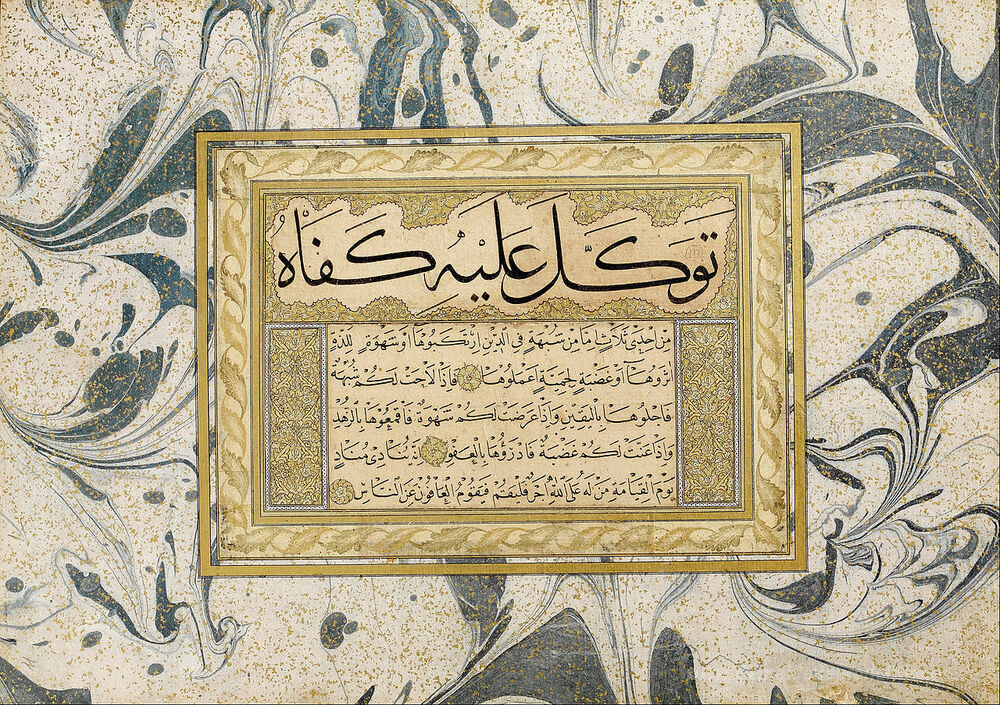 تَوَكَّلَ عَلَيْهِ كَفَاهُ
مِنْ اِحْدٰى ثَلَاثٍ اِمَّا مِنْ شُبْهَةٍ فِى الدِّينِ ارْتَكَبُوهَا اَوْ شَهْوَةٍ لِلَذَّةٍ
اٰثَرُوهَا اَوْ غَضْبَةٍ لِحَمِيَّةٍ اَعْمَلُوهَا فَاِذَا لَاحَتْ لَكُمْ شُبْهَةٌ
فَاجْلُوهَا بِالْيَقِينِ وَاِذَا عَرَضَتْ لَكُمْ شَهْوَةٌ فَاقْمَعُوهَا بِالزُّهْدِ
وَاِذَا عَنَّتْ لَكُمْ غَضْبَةٌ فَادْرَؤُهَا بِالْعَفْوِ يُنَادِى مُنَادٍ
يَوْمَ الْقِيَامَةِ مَنْ لَهُ عَلَى اللّٰهِ اَجْرٌ فَلْيَقُمْ فَيَقُومُ الْعَافُونَ عَنِ النَّاسِ